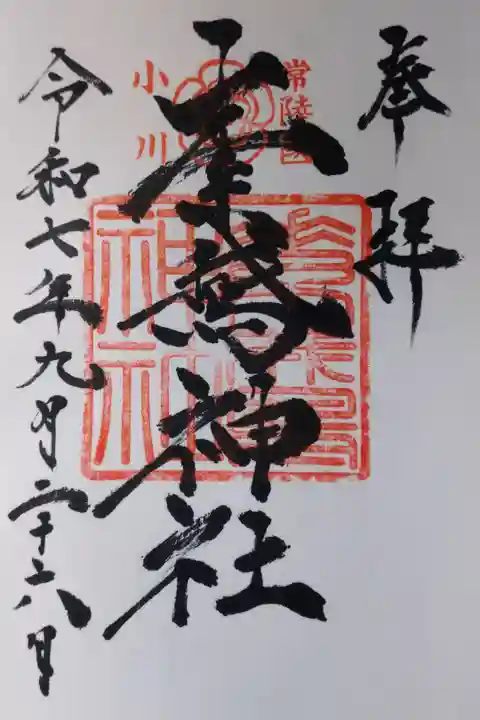 奉拝
常陸國
小川
素鵞神社
令和七年九月二十六日